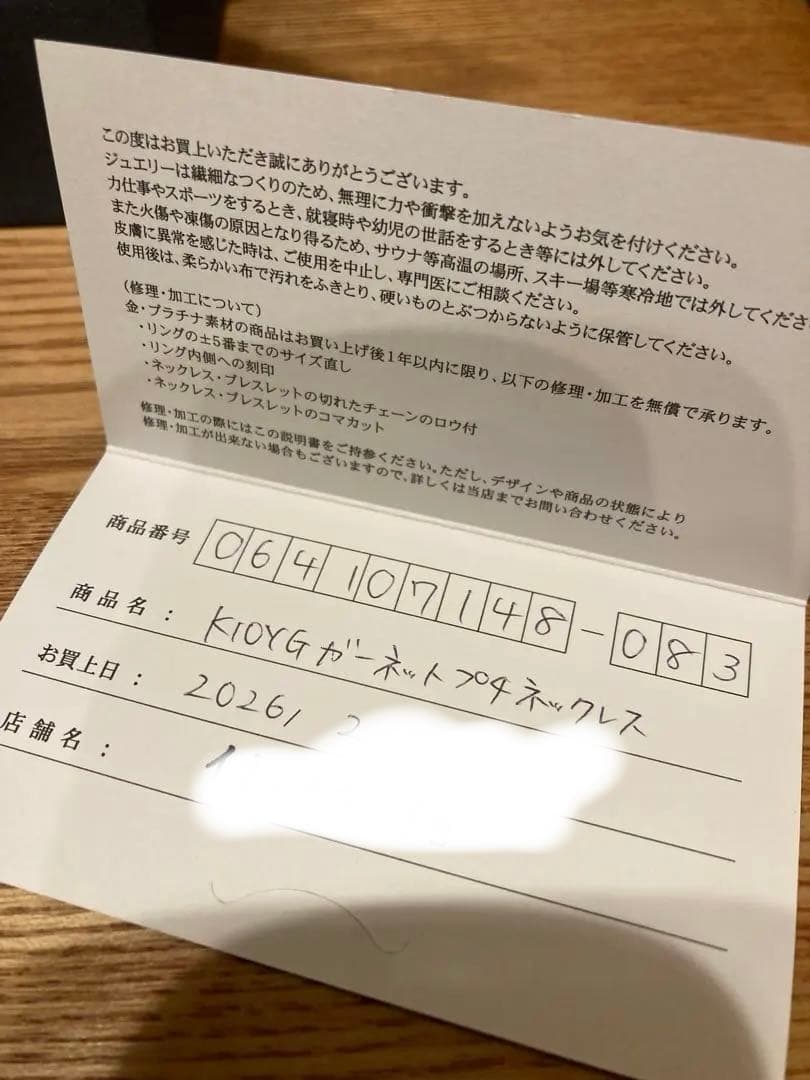 この度はお買上いただき誠にありがとうございます。
ジュエリーは繊細なつくりのため、無理に力や衝撃を加えないようお気を付けください。
力仕事やスポーツをするとき、就寝時や幼児の世話をするとき等には外してください。
また火傷や凍傷の原因となり得るため、サウナ等高温の場所、スキー場等寒冷地では外してくださ
皮膚に異常を感じた時は、ご使用を中止し、専門医にご相談ください。
使用後は、柔らかい布で汚れをふきとり、硬いものとぶつからないように保管してください。
(修理・加工について)
金・プラチナ素材の商品はお買い上げ後1年以内に限り、以下の修理・加工を無償で承ります。
・リングの±5番までのサイズ直し
・リング内側への刻印
・ネックレス・ブレスレットの切れたチェーンのロウ付
・ネックレス・ブレスレットのコマカット
修理・加工の際にはこの説明書をご持参ください。ただし、デザインや商品の状態により
修理・加工が出来ない場合もございますので、詳しくは当店までお問い合わせください。
商品番号 064107148-083
商品名: K10YGガーネットプチネックレス
お買上日: 2026,
店舗名: